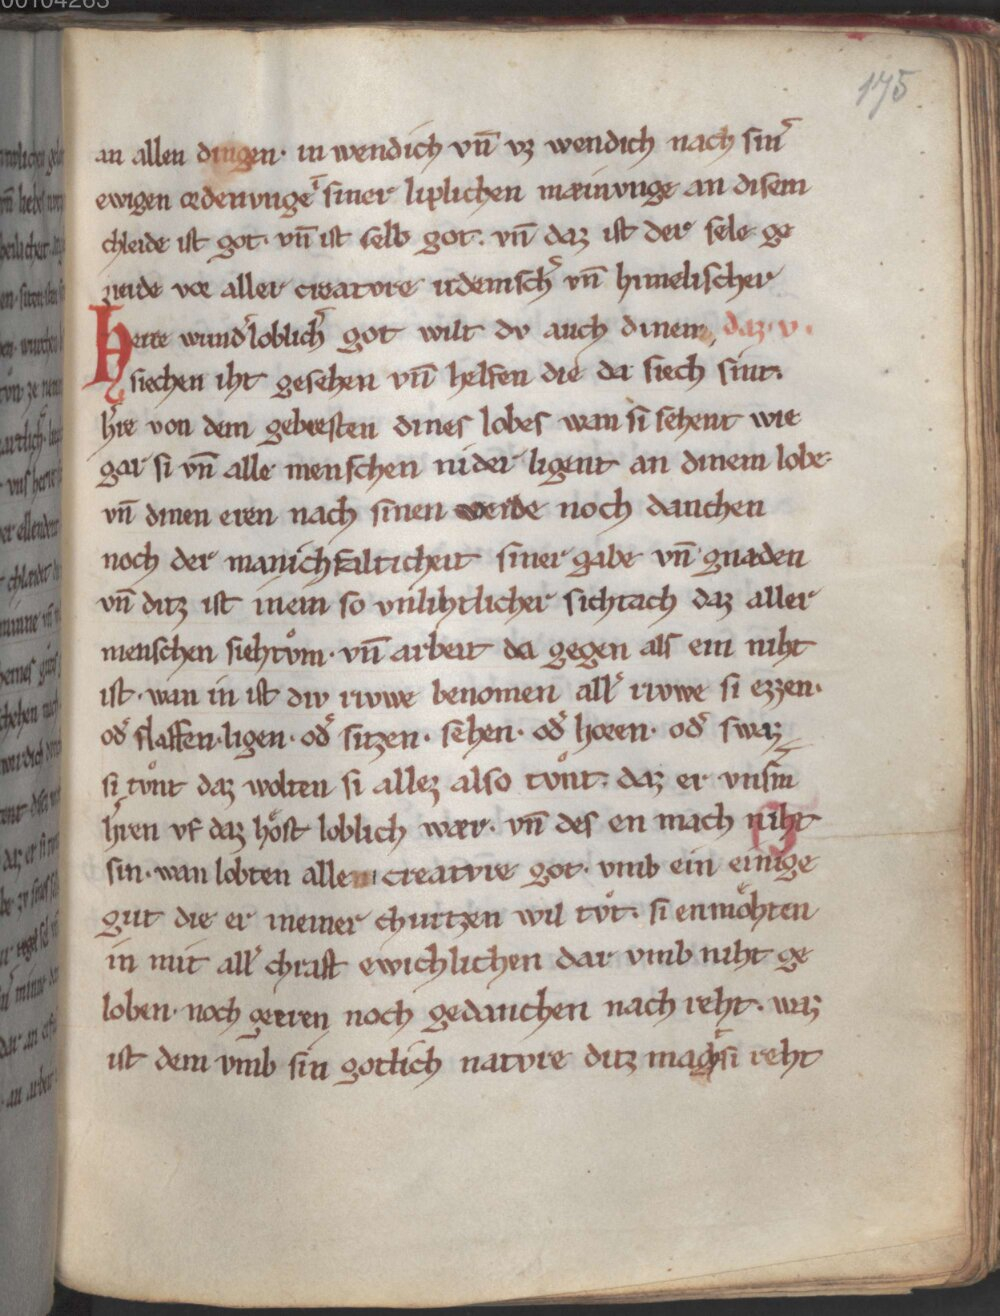 175
an allen dingen· in wendich vn̄ vz wendich nach sin͛
ewigen ordenvnge͛ siner liplichen mainvnge an disem
chleide ist got· vn̄ ist selb got. vn̄ daz ist der sele ge
zierde vor aller creatvre irdenisch͛ vn̄ himelischer
Herre wund͛loblich͛ got wilt dv auch dinem, daz· v·
siechen iht gesehen vn̄ helfen die da siech sint.
h͛re von dem gebresten dines lobes wan si sehent wie
gar si vn̄ alle menschen nider ligent an dinem lobe·
vn̄ dinen eren nach sinen werde noch danchen
noch der manichualticheit siner gabe vn̄ gnaden
vn̄ ditz ist in ein so vnlihtlicher sichtach daz aller
menschen siehtvͦm· vn̄ arbeit da gegen als ein niht
ist· wan in ist div rvwe benomen all͛ rvwe si ezzen·
od͛ slaffen· ligen· od͛ sitzen· sehen· od͛ horen· od͛ swaz
si tvͦnt daz wolten si allez also tvͦnt· daz er vnsm
h͛ren vf daz hoͤst loblich wær· vn̄ des en mach niht
sin· wan lobten alle creatvre got· vmb ein einige
gut die er meiner churtzen wil tvͦt· si en moͤhten
in mit all͛ chraft ewichlichen dar vmb niht ge
loben· noch geeren noch gedanchen nach reht· waz
ist dem vmb sin gotlich natvre ditz mach si reht